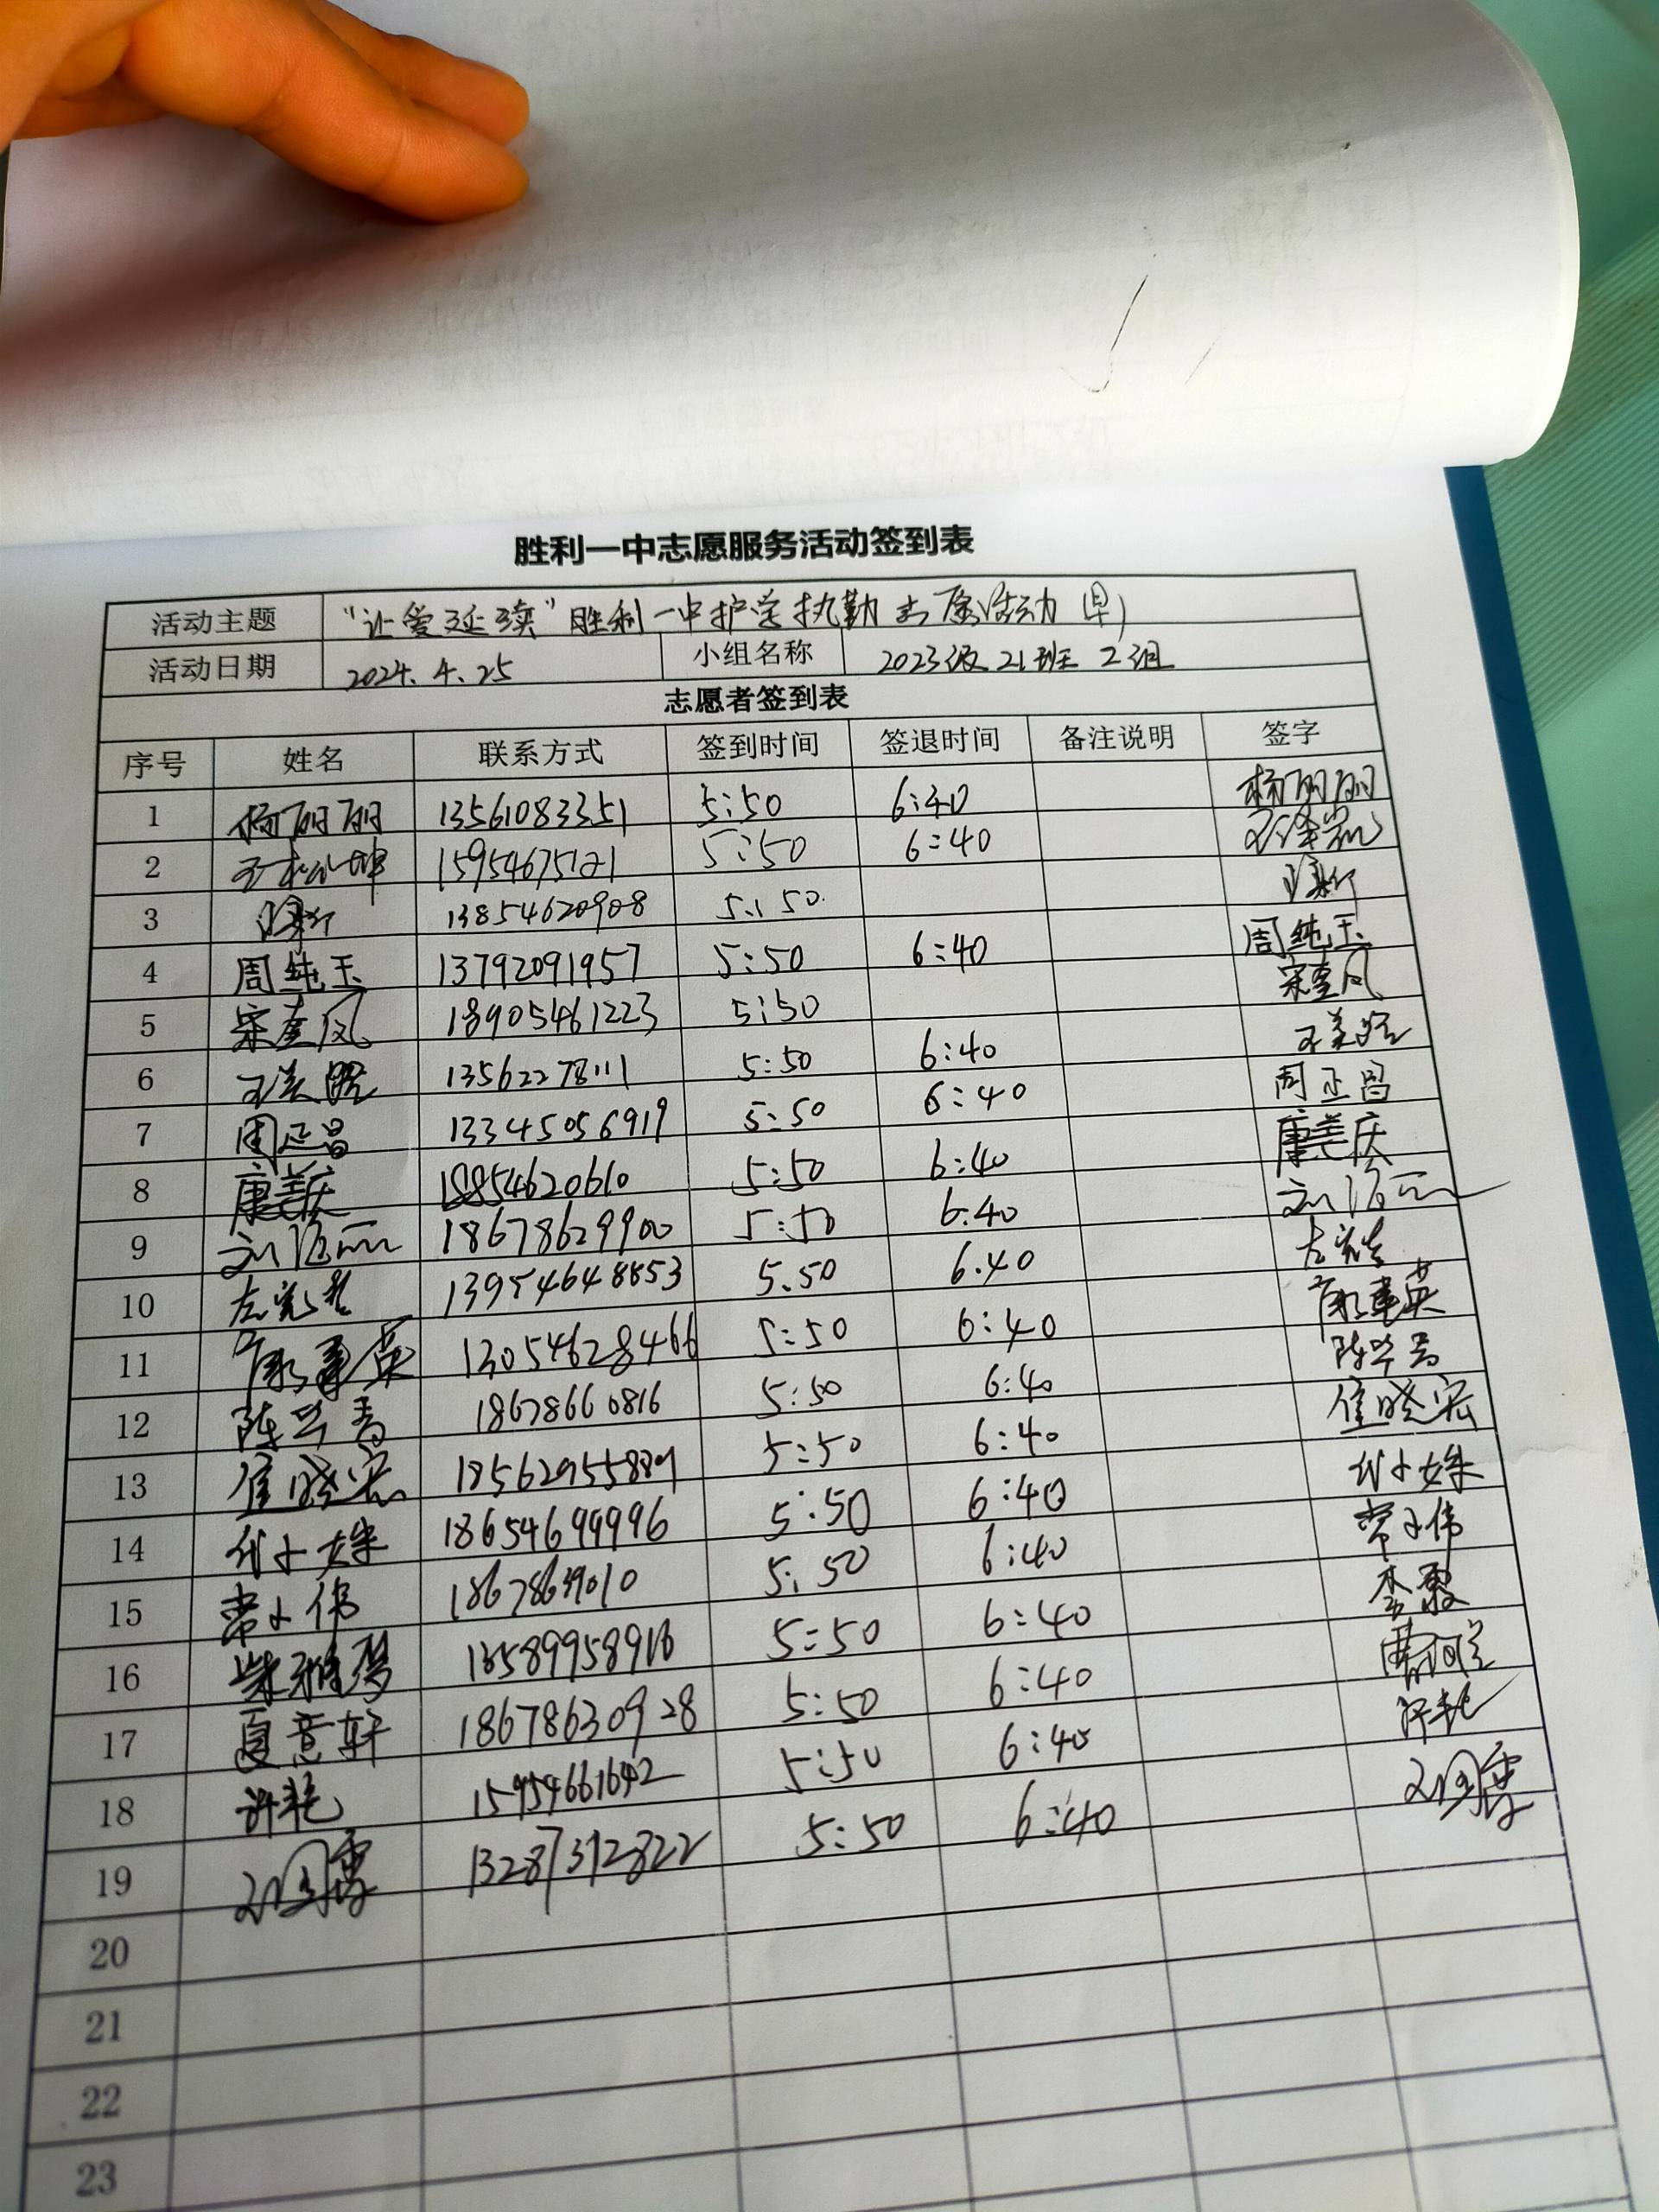 胜利一中志愿服务活动签到表
活动主题 "让爱延续"胜利一中护学执勤志愿活动(早)
活动日期 2024.4.25 小组名称 2023级21班2组
志愿者签到表
序号 姓名 联系方式 签到时间 签退时间 备注说明 签字
1 杨丽丽 13561083351 5:50 6:40 杨丽丽
2 15954675121 5:50 6:40
3 13854620908 5:50
4 周纯玉 13792091957 5:50 6:40 周纯玉
5 宋奎凤 18905461223 5:50 宋奎凤
6 13562278111 5:50 6:40
7 周正昌 13345056919 5:50 6:40 周正昌
8 康美庆 18854620610 5:50 6:40 康美庆
9 18678629900 5:50 6:40
10 13954648853 5.50 6.40
11 13054628466 5:50 6:40
12 18678660816 5:50 6:40
13 崔晓宏 5:50 6:40 崔晓宏
14 代小姝 18654699996 5:50 6:40 代小姝
15 常小伟 5:50 6:40 常小伟
16 柴雅琴 5:50 6:40
17 夏意轩 18678630928 5:50 6:40
18 许艳 15954661642 5:50 6:40 许艳
19 13287312822 5:50 6:40
20
21
22
23